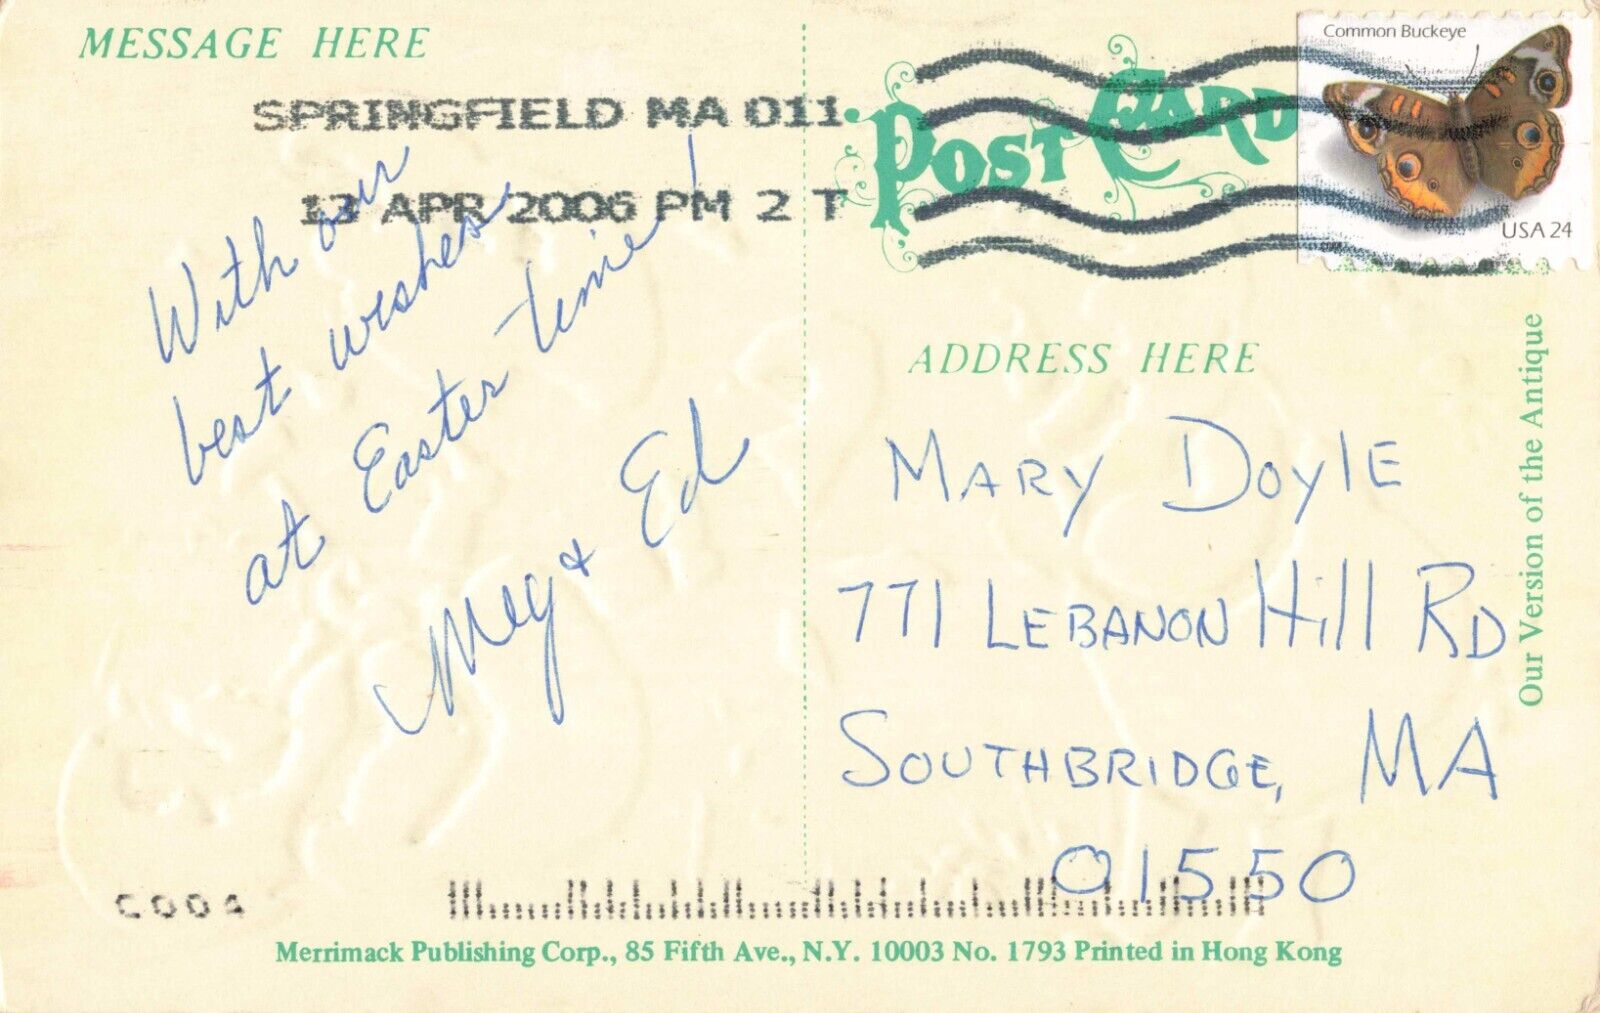 MESSAGE HERE
SPRINGFIELD MA 011
13 APR 2006 PM 2 T
With our
best wishes
at Easter time!
Meg + Ed
POST CARD
Common Buckeye
USA 24
ADDRESS HERE
Mary Doyle
771 Lebanon Hill Rd
Southbridge, MA
01550
Our Version of the Antique
C004
Merrimack Publishing Corp., 85 Fifth Ave., N.Y. 10003 No. 1793 Printed in Hong Kong